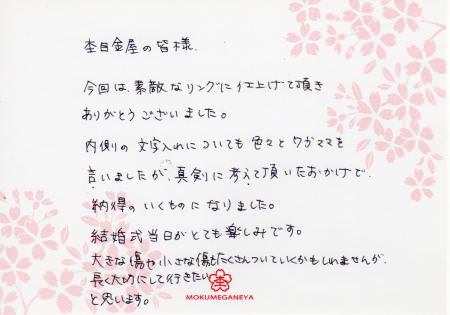 杢目金屋の皆様
今回は、素敵なリングに仕上げて頂き
ありがとうございました。
内側の文字入れについても色々とワガママを
言いましたが、真剣に考えて頂いたおかげで、
納得のいくものになりました。
結婚式当日がとても楽しみです。
大きな傷や小さな傷もたくさんついていくかもしれませんが、
長く大切にして行きたい
と思います。
MOKUMEGANEYA